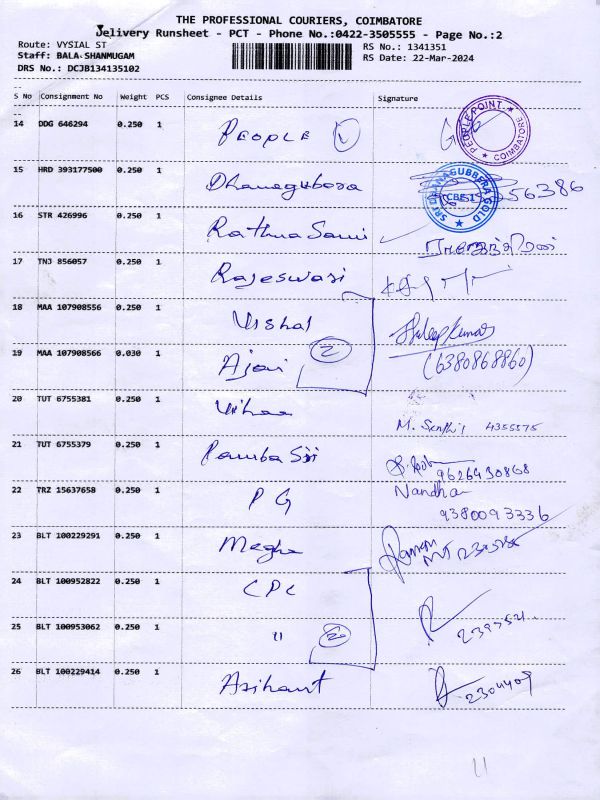 THE PROFESSIONAL COURIERS, COIMBATORE
Delivery Runsheet - PCT - Phone No.:0422-3505555 - Page No.:2
Route: VYSIAL ST RS No.: 1341351
Staff: BALA SHANMUGAM RS Date: 22-Mar-2024
DRS No.: DCJB134135102
S No Consignment No Weight PCS Consignee Details Signature
14 DDG 646294 0.250 1 PEOPLE PEOPLE POINT COIMBATORE
15 HRD 393177500 0.250 1 Dhanagubera SRI DHANAGUBBERA GOLD CBE-1 56386
16 STR 426996 0.250 1 Rathna Sami
17 TNJ 856057 0.250 1 Rajeswari
18 MAA 107908556 0.250 1 Vishal
19 MAA 107908566 0.030 1 Ajai 2 (6380868860)
20 TUT 6755381 0.250 1 M. Senthil 4355575
21 TUT 6755379 0.250 1 Pamba Siri 9626930868
22 TRZ 15637658 0.250 1 PG Nandha
9380093336
23 BLT 100229291 0.250 1 Megha
24 BLT 100952822 0.250 1 CPC
25 BLT 100953062 0.250 1 11 2
26 BLT 100229414 0.250 1 Arihant 2304409
11